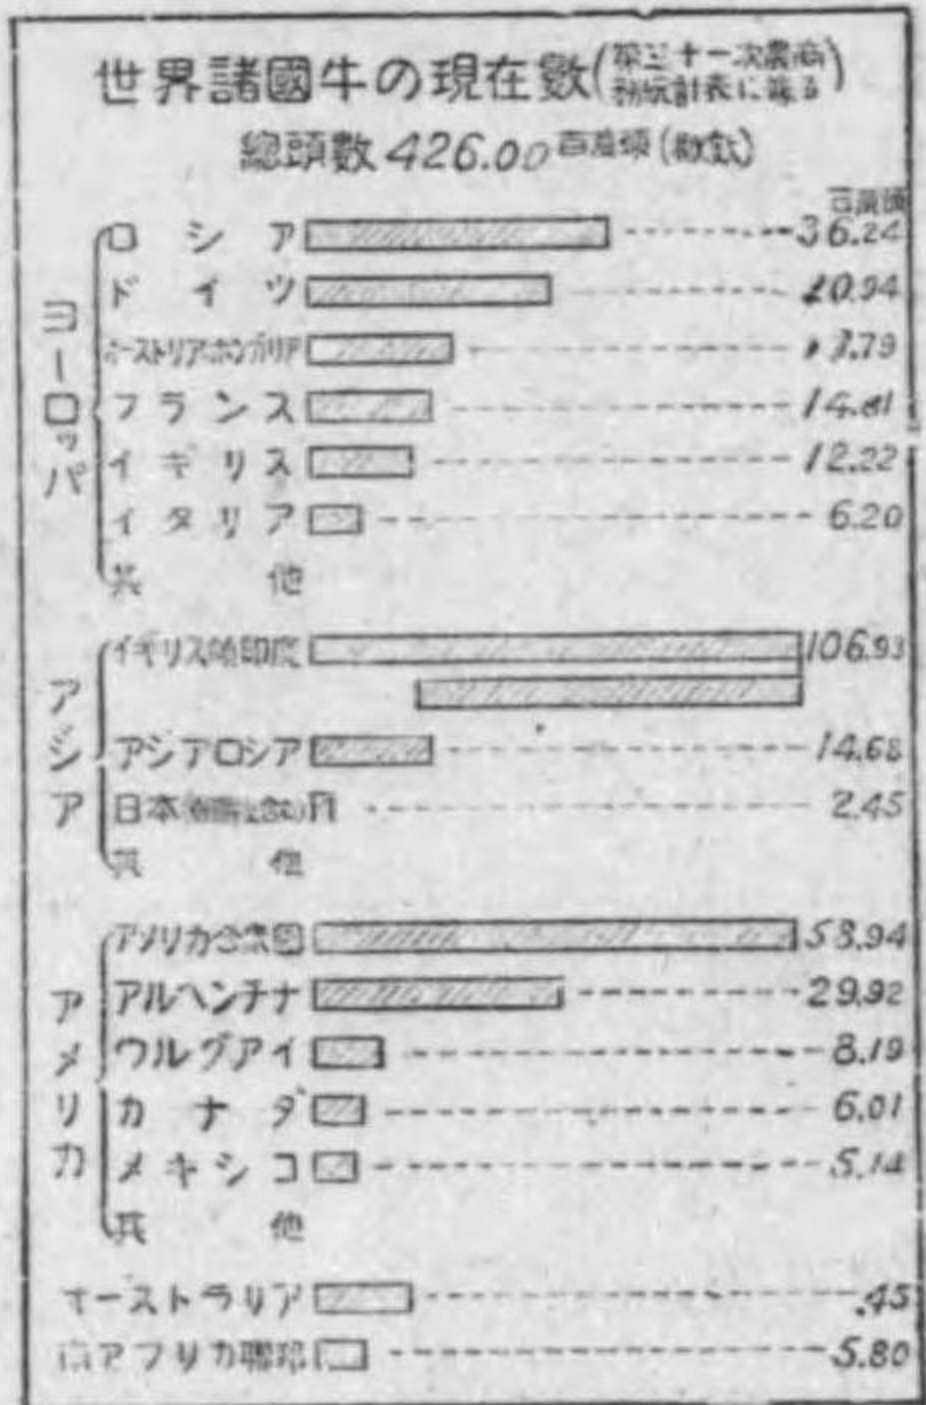 世界諸國牛の現在數(第三十一次農商務統計表に據る)
總頭數 426.00 百萬頭 (概數)
百萬頭
ヨーロッパ
ロシア 36.24
ドイツ 20.94
オーストリアホンガリア
フランス
イギリス 12.22
イタリア 6.20
其他
アジア
イギリス領印度 106.93
アジアロシア 14.68
日本 2.45
其他
アメリカ
アメリカ合衆國 58.94
アルヘンチナ 29.92
ウルグアイ 8.19
カナダ 6.01
メキシコ 5.14
其他
オーストラリア .45
南アフリカ聯邦 5.80